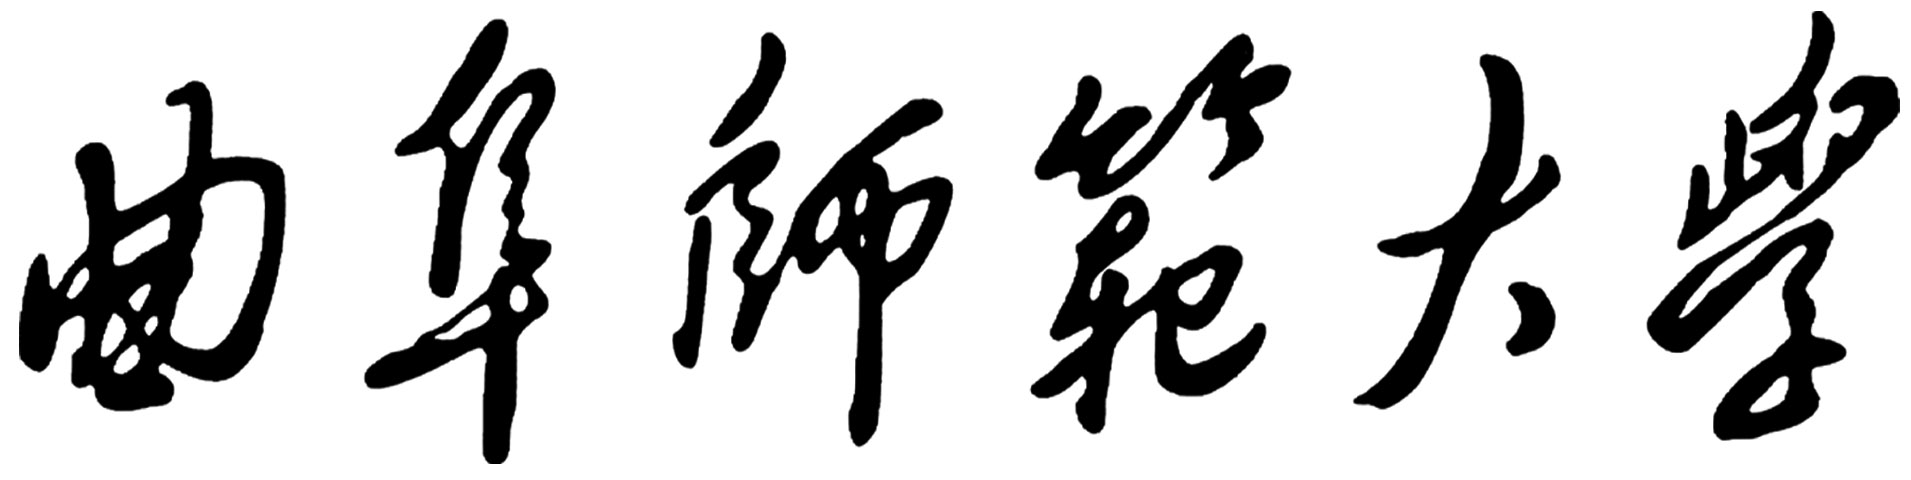 曲阜师範大學